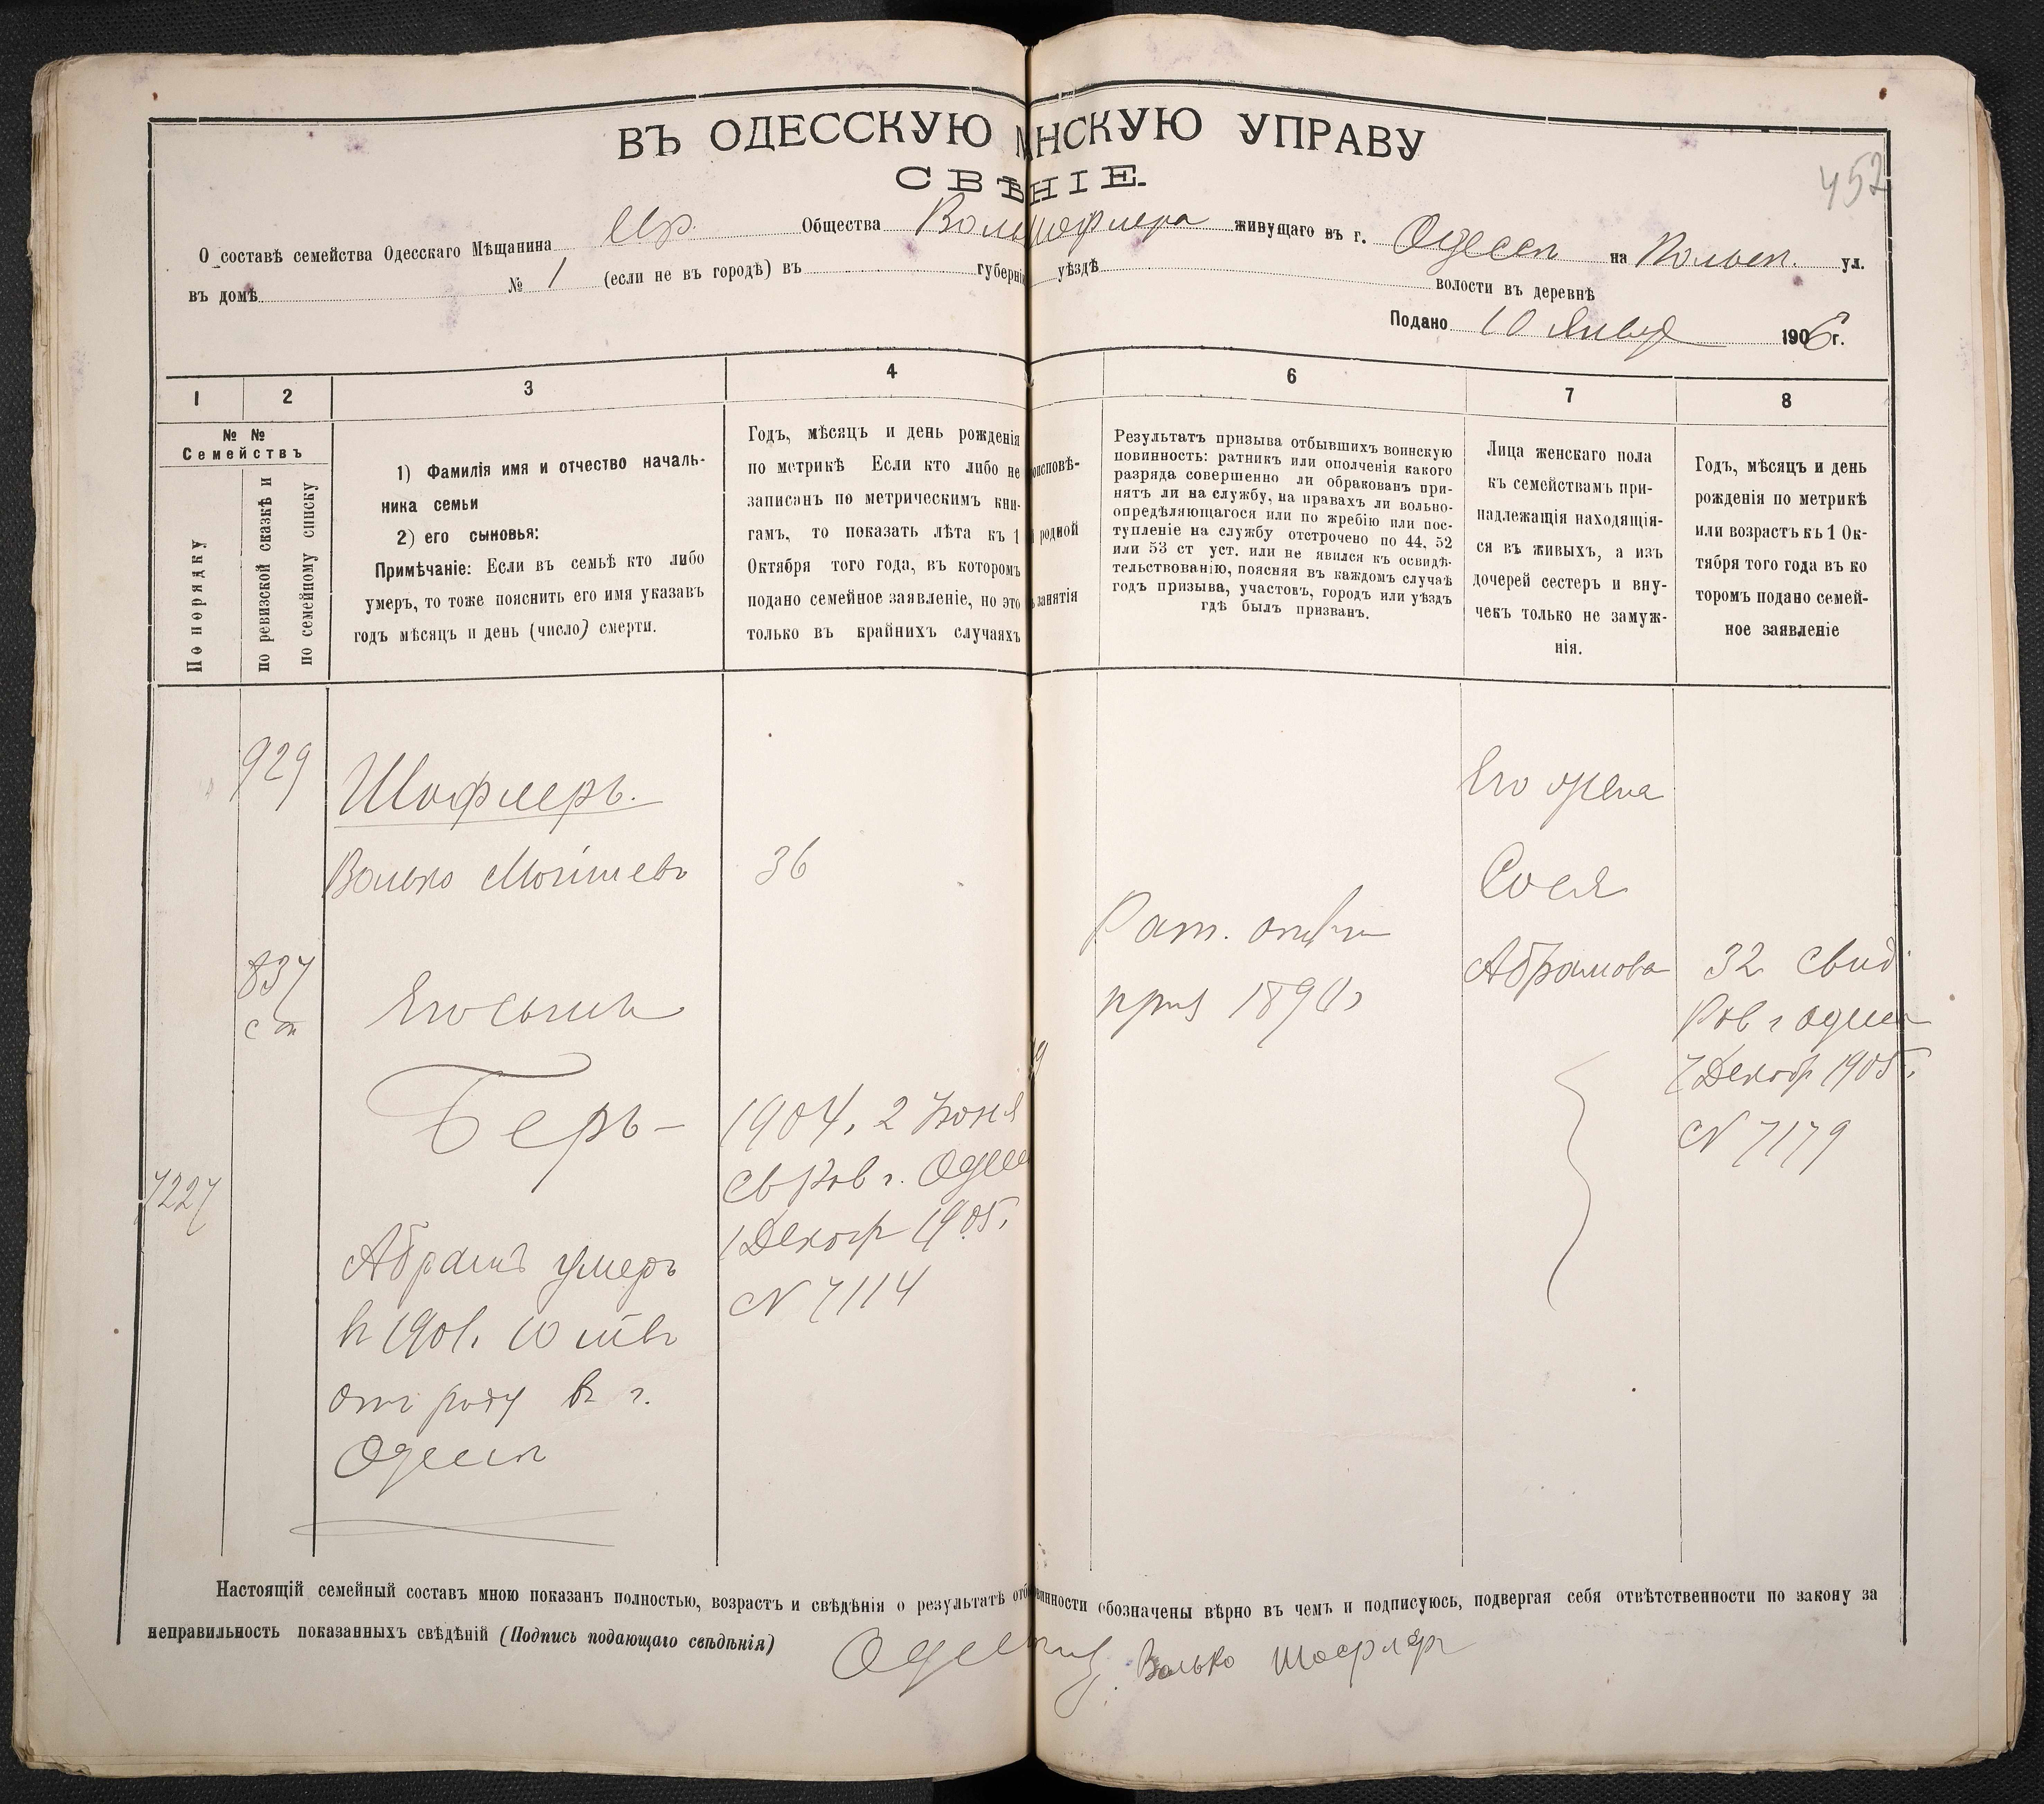 ВЪ ОДЕССКУЮ НСКУЮ УПРАВУ
СВѢНІЕ.
452
О составѣ семейства Одесскаго Мѣщанина Евр. Общества Воль Шофлера живущаго въ г. Одессѣ на ул.
въ домѣ № 1 (если не въ городѣ) въ губерні уѣздѣ волости въ деревнѣ
Подано 10 Январ 1906 г.
1 2 3 4 6 7 8
№ №
Семействъ
По порядку
по ревизской сказкѣ и
по семейному списку
1) Фамилія имя и отчество началь-
ника семьи
2) его сыновья:
Примѣчаніе: Если въ семьѣ кто либо
умеръ, то тоже пояснить его имя указавъ
годъ мѣсяцъ и день (число) смерти.
Годъ, мѣсяцъ и день рожденія
по метрикѣ Если кто либо не
записанъ по метрическимъ кни-
гамъ, то показать лѣта къ 1
Октября того года, въ которомъ
подано семейное заявленіе, но это
только въ крайнихъ случаяхъ
оисповѣ-
родной
занятія
Результатъ призыва отбывшихъ воинскую
повинность: ратникъ или ополченія какого
разряда совершенно ли обракованъ при-
нятъ ли на службу, на правахъ ли вольно-
опредѣляющагося или по жребію или пос-
тупленіе на службу отстрочено по 44, 52
или 53 ст уст. или не явился къ освидѣ-
тельствованію, поясняя въ каждомъ случаѣ
годъ призыва, участовъ, городъ или уѣздъ
гдѣ былъ призванъ.
Лица женскаго пола
къ семействамъ при-
надлежащія находящія-
ся въ живыхъ, а изъ
дочерей сестеръ и вну-
чекъ только не замуж-
нія.
Годъ, мѣсяцъ и день
рожденія по метрикѣ
или возрастъ къ 1 Ок-
тября того года въ ко
торомъ подано семей-
ное заявленіе
929
Шофлеръ.
Волько Мойшевъ
36
837
Его сынъ
Беръ
7227
Абрамъ умеръ
въ 1901. 10 лѣтъ
отъ роду въ г.
Одессѣ
1904, 2 Іюня
св Рав г. Одес
1 Декабр 1905.
N 7114
Рат.
приз
Его жена
Сося
Абрамова
32 свид
Рав г Одес
7 Декабр 1905 г.
N 7179
Настоящій семейный составъ мною показанъ полностью, возрастъ и свѣдѣнія о результатѣ отб инности обозначены вѣрно въ чемъ и подписуюсь, подвергая себя отвѣтственности по закону за
неправильность показанныхъ свѣдѣній (Подпись подающаго свѣдѣнія) Волько Шофлеръ